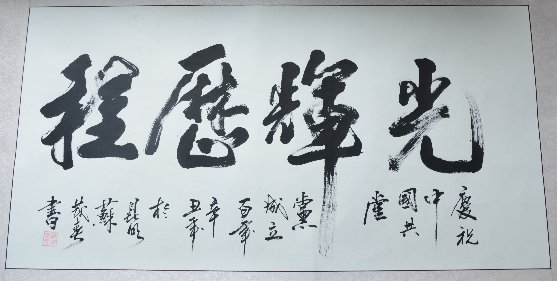 光輝歷程
慶祝
中
國共
產
黨
成立
百年
辛
丑年
於
昆明
蘇
書